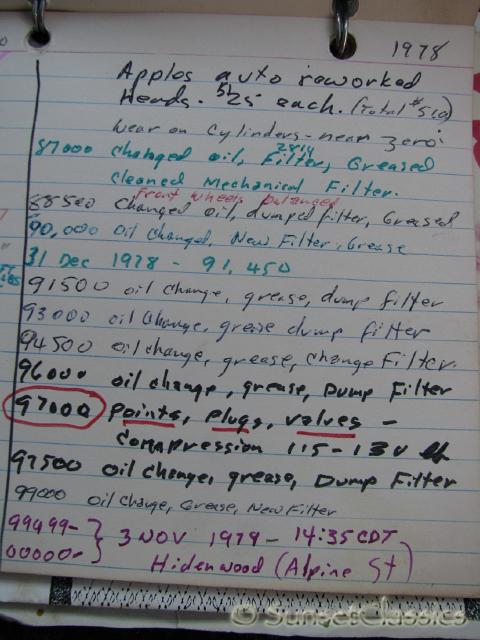 1978
Apples auto reworked
Heads. $25 each. (Total $50)
Wear on cylinders - near zero.
2814
87000 changed oil, Filter, Greased
cleaned Mechanical Filter.
Front wheels balanced
88500 changed oil, dumped filter, Greased
90,000 oil changed, New Filter, Grease
31 Dec 1978 - 91,450
91500 oil change, grease, dump filter
93000 oil change, grease dump filter
94500 oil change, grease, change Filter.
96000 oil change, grease, Dump Filter
97000 points, plugs, valves -
compression 115-130
97500 oil change, grease, Dump Filter
99000 oil change, Grease, New Filter
99999-
00000-
} 3 NOV 1979 - 14:35 CDT
Hidenwood (Alpine St)
© SunsetClassics